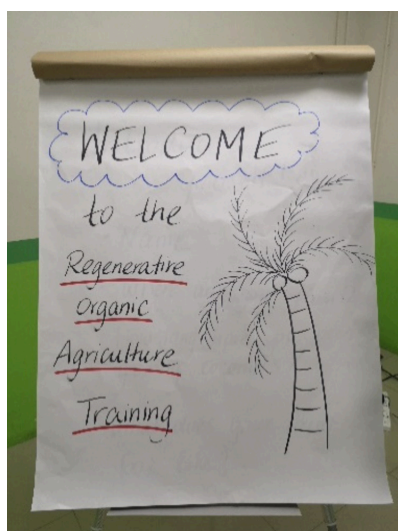 WELCOME
to the
Regenerative
Organic
Agriculture
Training